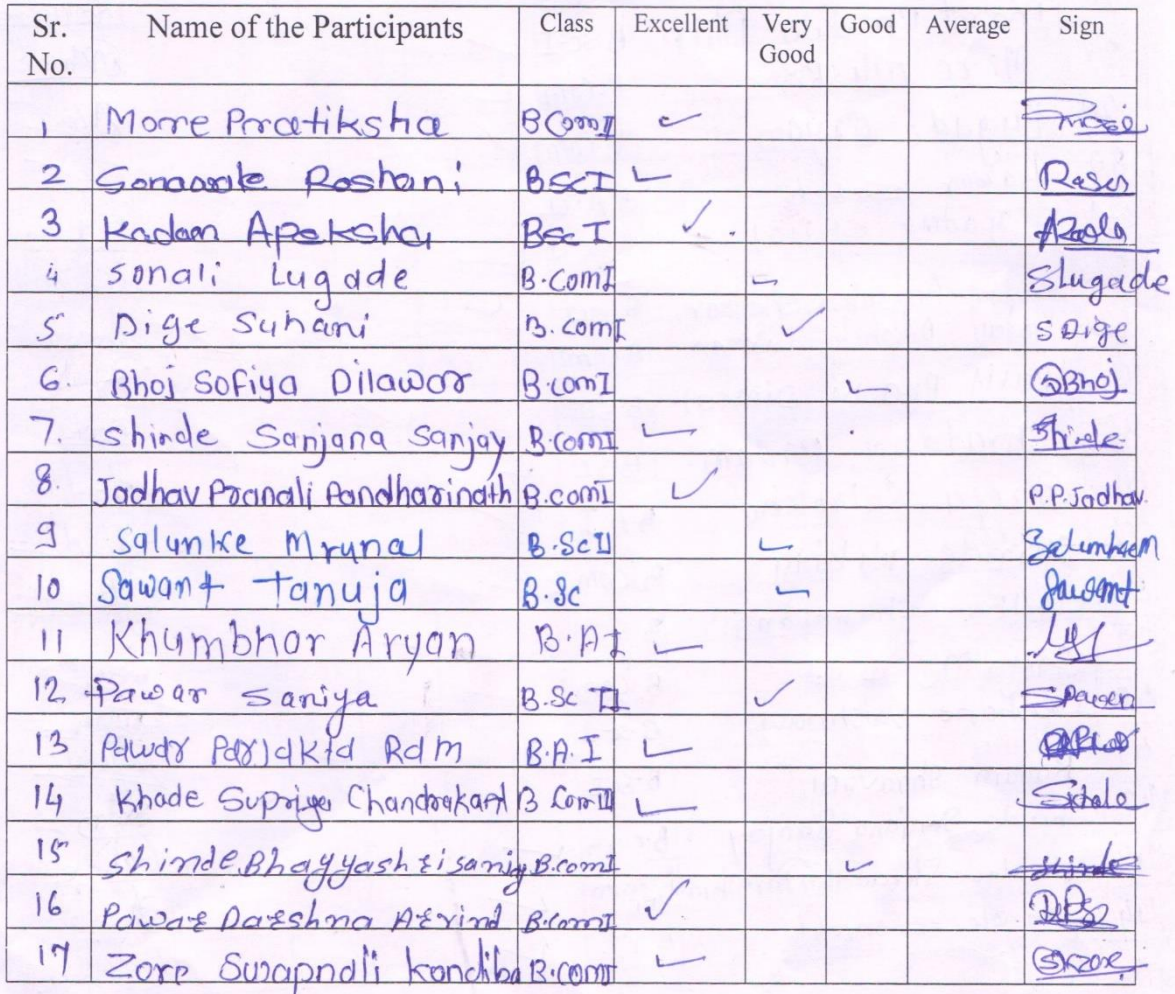 Sr. No. Name of the Participants Class Excellent Very Good Good Average Sign
1 More Pratiksha B Com II ✓
2 Sonawale Roshani BSc I ✓
3 Kadam Apeksha Bsc I ✓
4 Sonali Lugade B.Com I ✓ Slugade
5 Dige Suhani B.com I ✓ S Dige
6. Bhoj Sofiya Dilawar B.com I ✓ Bhoj
7. Shinde Sanjana Sanjay B.com I ✓ Shinde
8. Jadhav Pranali Pandharinath B.com I ✓ P.P.Jadhav.
9 Salunke Mrunal B.Sc II ✓
10 Sawant Tanuja B.Sc ✓ Sawant
11 Khumbhar Aryan B.A I ✓
12 Pawar Saniya B.Sc II ✓
13 Pawar Ram B.A.I ✓
14 Khade Supriya Chandrakant B Com III ✓
15 Shinde Bhagyashri B.com I ✓ Shinde
16 Pawar Darshna Arvind B.com I ✓
17 Zore Swapnali Kondiba B.com ✓ SKZore